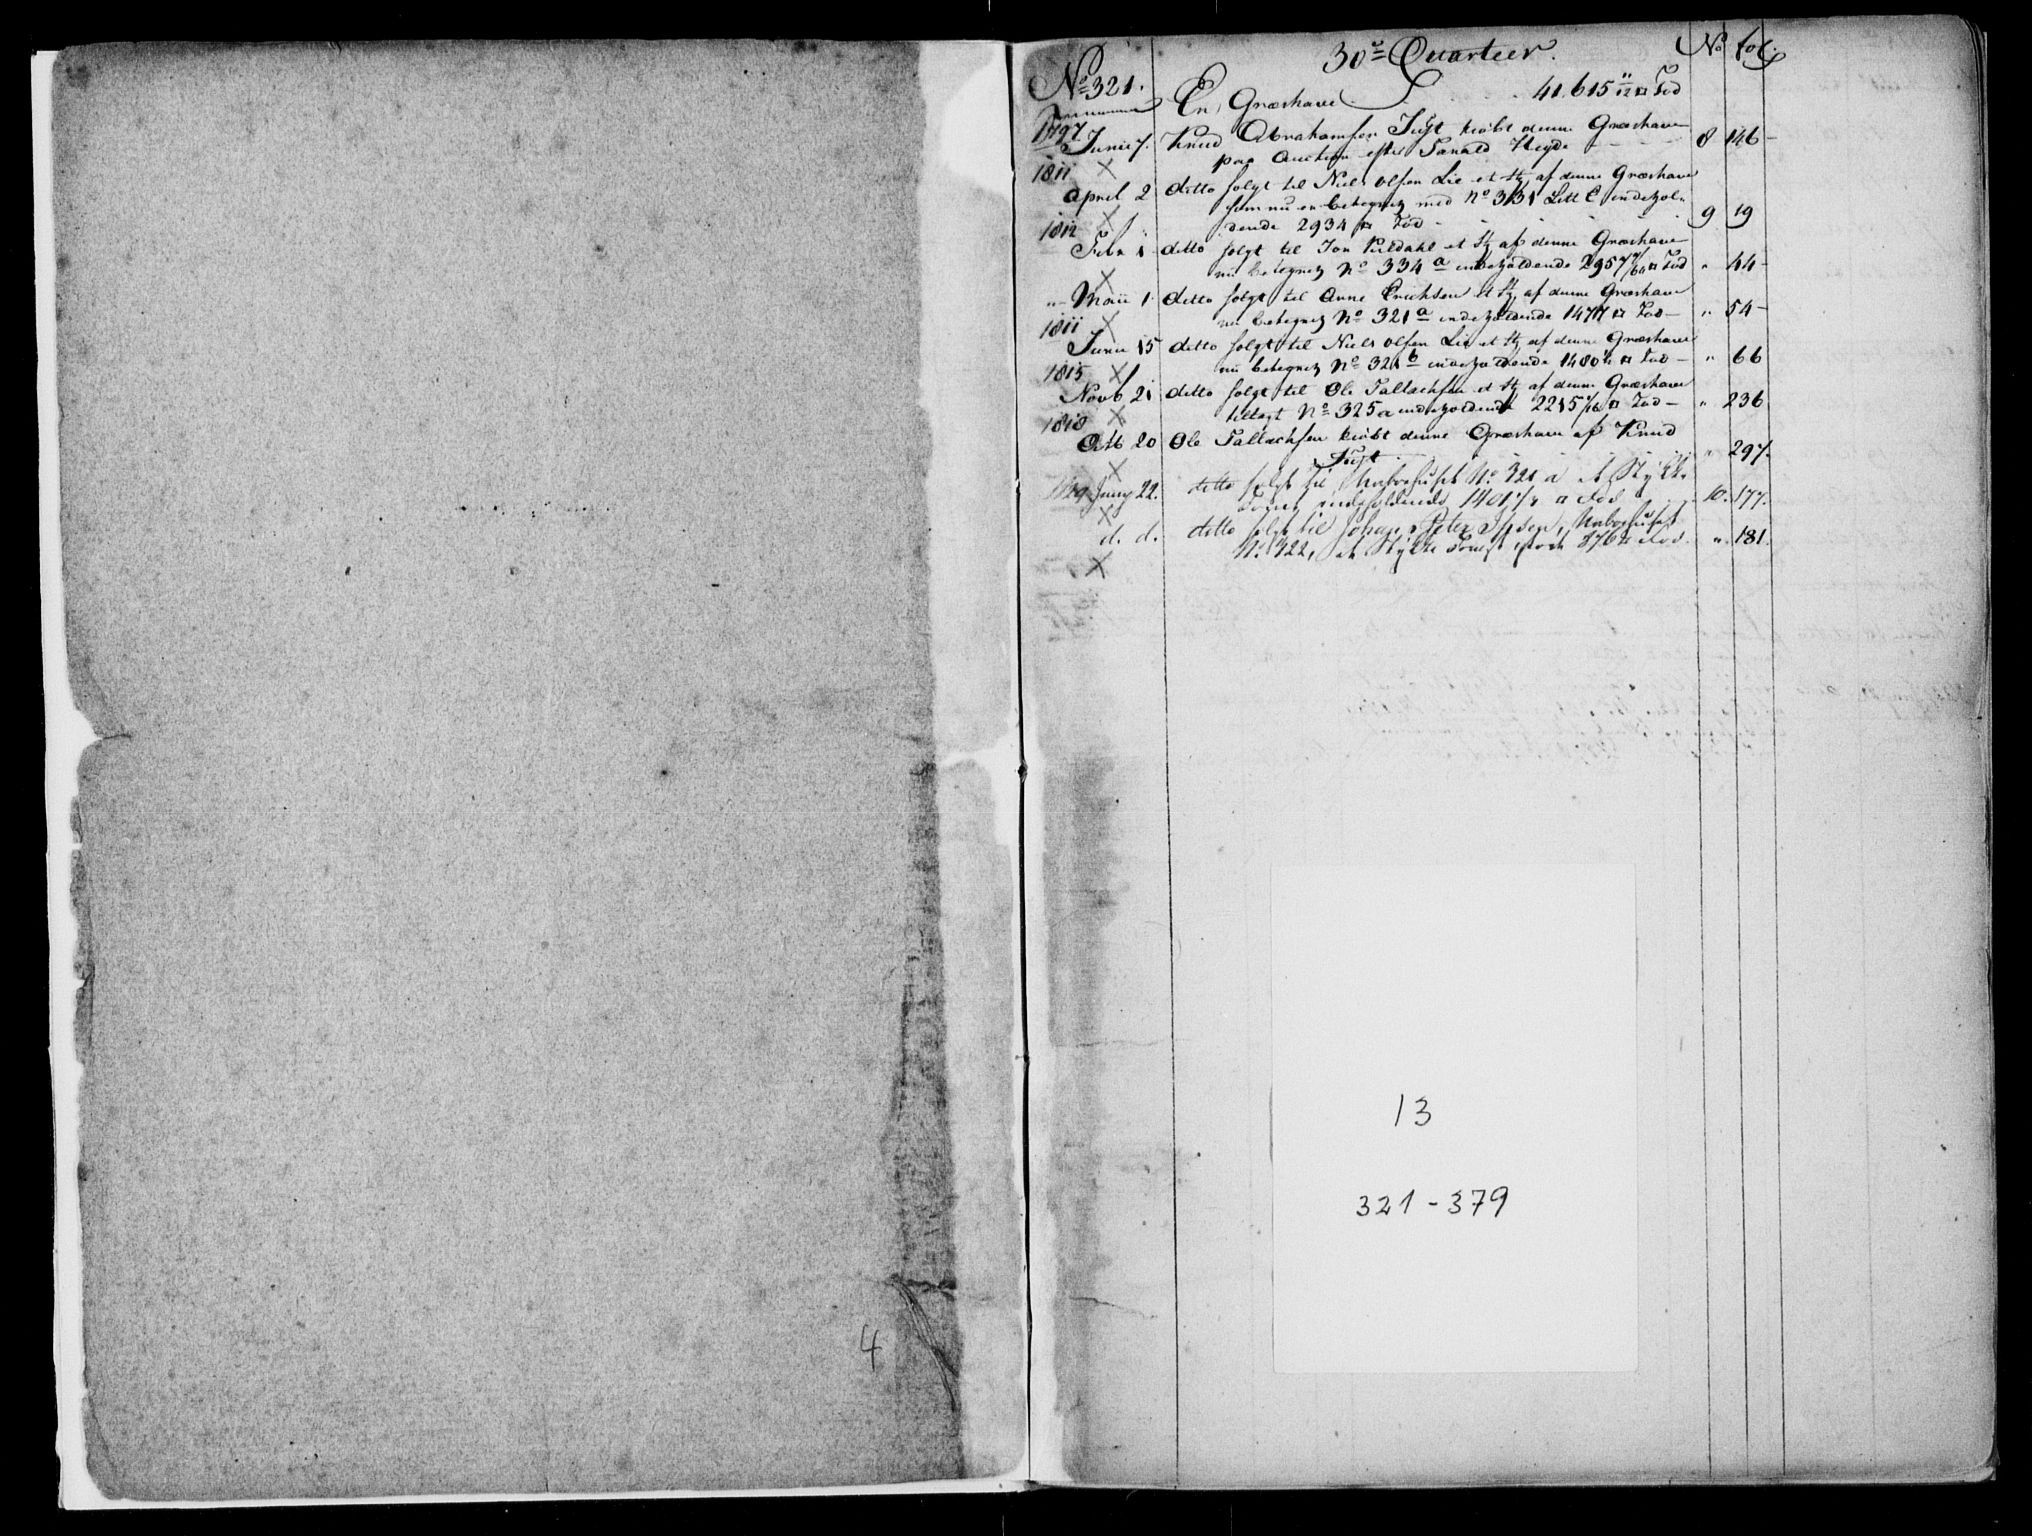 30te Quarteer. No fol:
No 321. En Græshave 41.615 11/12 □ Fod
1797
Junii 7. Knud Abrahamsen Tufft kiøbt denne Græshave
paa Auction efter Tarald Heyde 8 146
1811
April 2 ditto solgt til Niels Olsen Lie et St af denne Græshave
som nu er betegnet med No 331 Litt C indehol-
dende 2934 □ Fod 9 19
1812
Febr 1 ditto solgt til Jon et St af denne Græshave
nu betegnet No 334 a indeholdende 2957 □ Fod " 44
" Maii 1 ditto solgt til Anne Erichsen et St af denne Græshave
nu betegnet No 321 a indeholdende 1477 □ Fod " 54
1811
Junii 15 ditto solgt til Niels Olsen Lie et St af denne Græshave
nu betegnet No 321 b indeholdende 1480 □ Fod " 66
1815
Novb 21 ditto solgt til Ole Tallachsen et St af denne Græshave
tillagt No 325 a indeholdende 2215 □ Fod " 236
1818
Octb 20 Ole Tallachsen kiøbt denne Græshave af Knud
Tufft " 297.
1829 Juny 22. ditto solgt til No. 321 a et Stykke
indeholdende 1401 □ Fod 10. 177.
d. d. ditto solgt til Johan Peter Ipsen,
No. 322, et Stykke 876 □ Fod. " 181.
13
321-379
4